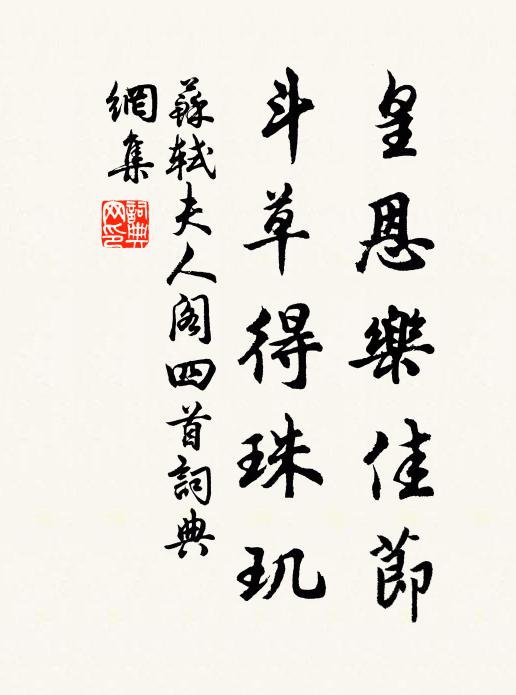 皇恩樂佳節
斗草得珠玑
蘇軾夫人阁四首詞典
網集
詞典网印